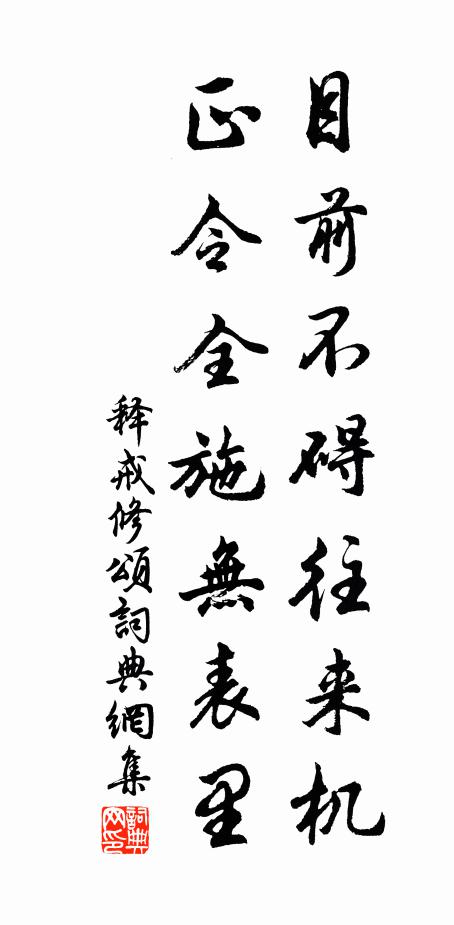 目前不碍往来机
正令全施無表里
释戒修頌詞典網集
詞典网印